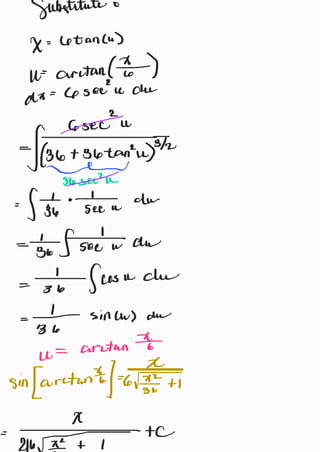 Substitute
x = 6tan(u)
u = arctan(x/6)
dx = 6 sec² u du
= ∫ 6 sec² u / (36 + 36 tan² u)^3/2
36 sec² u
= ∫ 1/36 · 1/sec u du
= 1/36 ∫ 1/sec u du
= 1/36 ∫ cos u du
= 1/36 sin(u) du
u = arctan x/6
sin[arctan x/6] = x / 6√(x²/36 + 1)
= x / 216√(x²/ + 1 +C